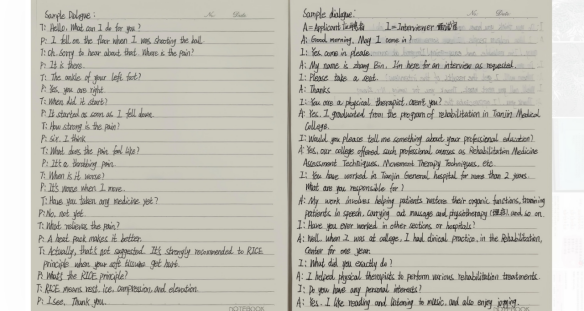 Sample Dialogue:
No. Date.
T: Hello, What can I do for you?
P: I fell on the floor when I was shooting the ball.
T: Oh. Sorry to hear about that. Where is the pain?
P: It is there.
T: The ankle of your left foot?
P: Yes, you are right.
T: When did it start?
P: It started as soon as I fell down.
T: How strong is the pain?
P: Six. I think
T: What does the pain feel like?
P: It's a burning pain.
T: When is it worse?
P: It's worse when I move.
T: Have you taken any medicine yet?
P: No, not yet.
T: What relieves the pain?
P: A heat pack makes it better.
T: Actually, that's not suggested. It's strongly recommended to RICE
principle when your soft tissues get hurt.
P: What's the RICE principle?
T: RICE means rest, ice, compression, and elevation.
P: I see. Thank you.
NOTEBOOK
Sample dialogue:
No. Date.
A = Applicant I = Interviewer
A: Good morning, May I come in?
I: Yes, come in please.
A: My name is Zhang Bin, I'm here for an interview as requested.
I: Please take a seat.
A: Thanks
I: You are a physical therapist, aren't you?
A: Yes, I graduated from the program of rehabilitation in Tianjin Medical
College.
I: Would you please tell me something about your professional education?
A: Yes, our college offered such professional courses as Rehabilitation Medicine
Assessment Techniques, Movement Therapy Techniques, etc.
I: You have worked in Tianjin General hospital for more than 2 years.
What are you responsible for?
A: My work involves helping patients restore their organic functions, training
patients in speech, carrying out massage and physiotherapy (理疗), and so on.
I: Have you ever worked in other sections or hospitals?
A: Well, when I was at college, I had clinical practice in the Rehabilitation
Center for one year.
I: What did you exactly do?
A: I helped physical therapists to perform various rehabilitation treatments.
I: Do you have any personal interests?
A: Yes. I like reading and listening to music, and also enjoy jogging.
NOTEBOOK